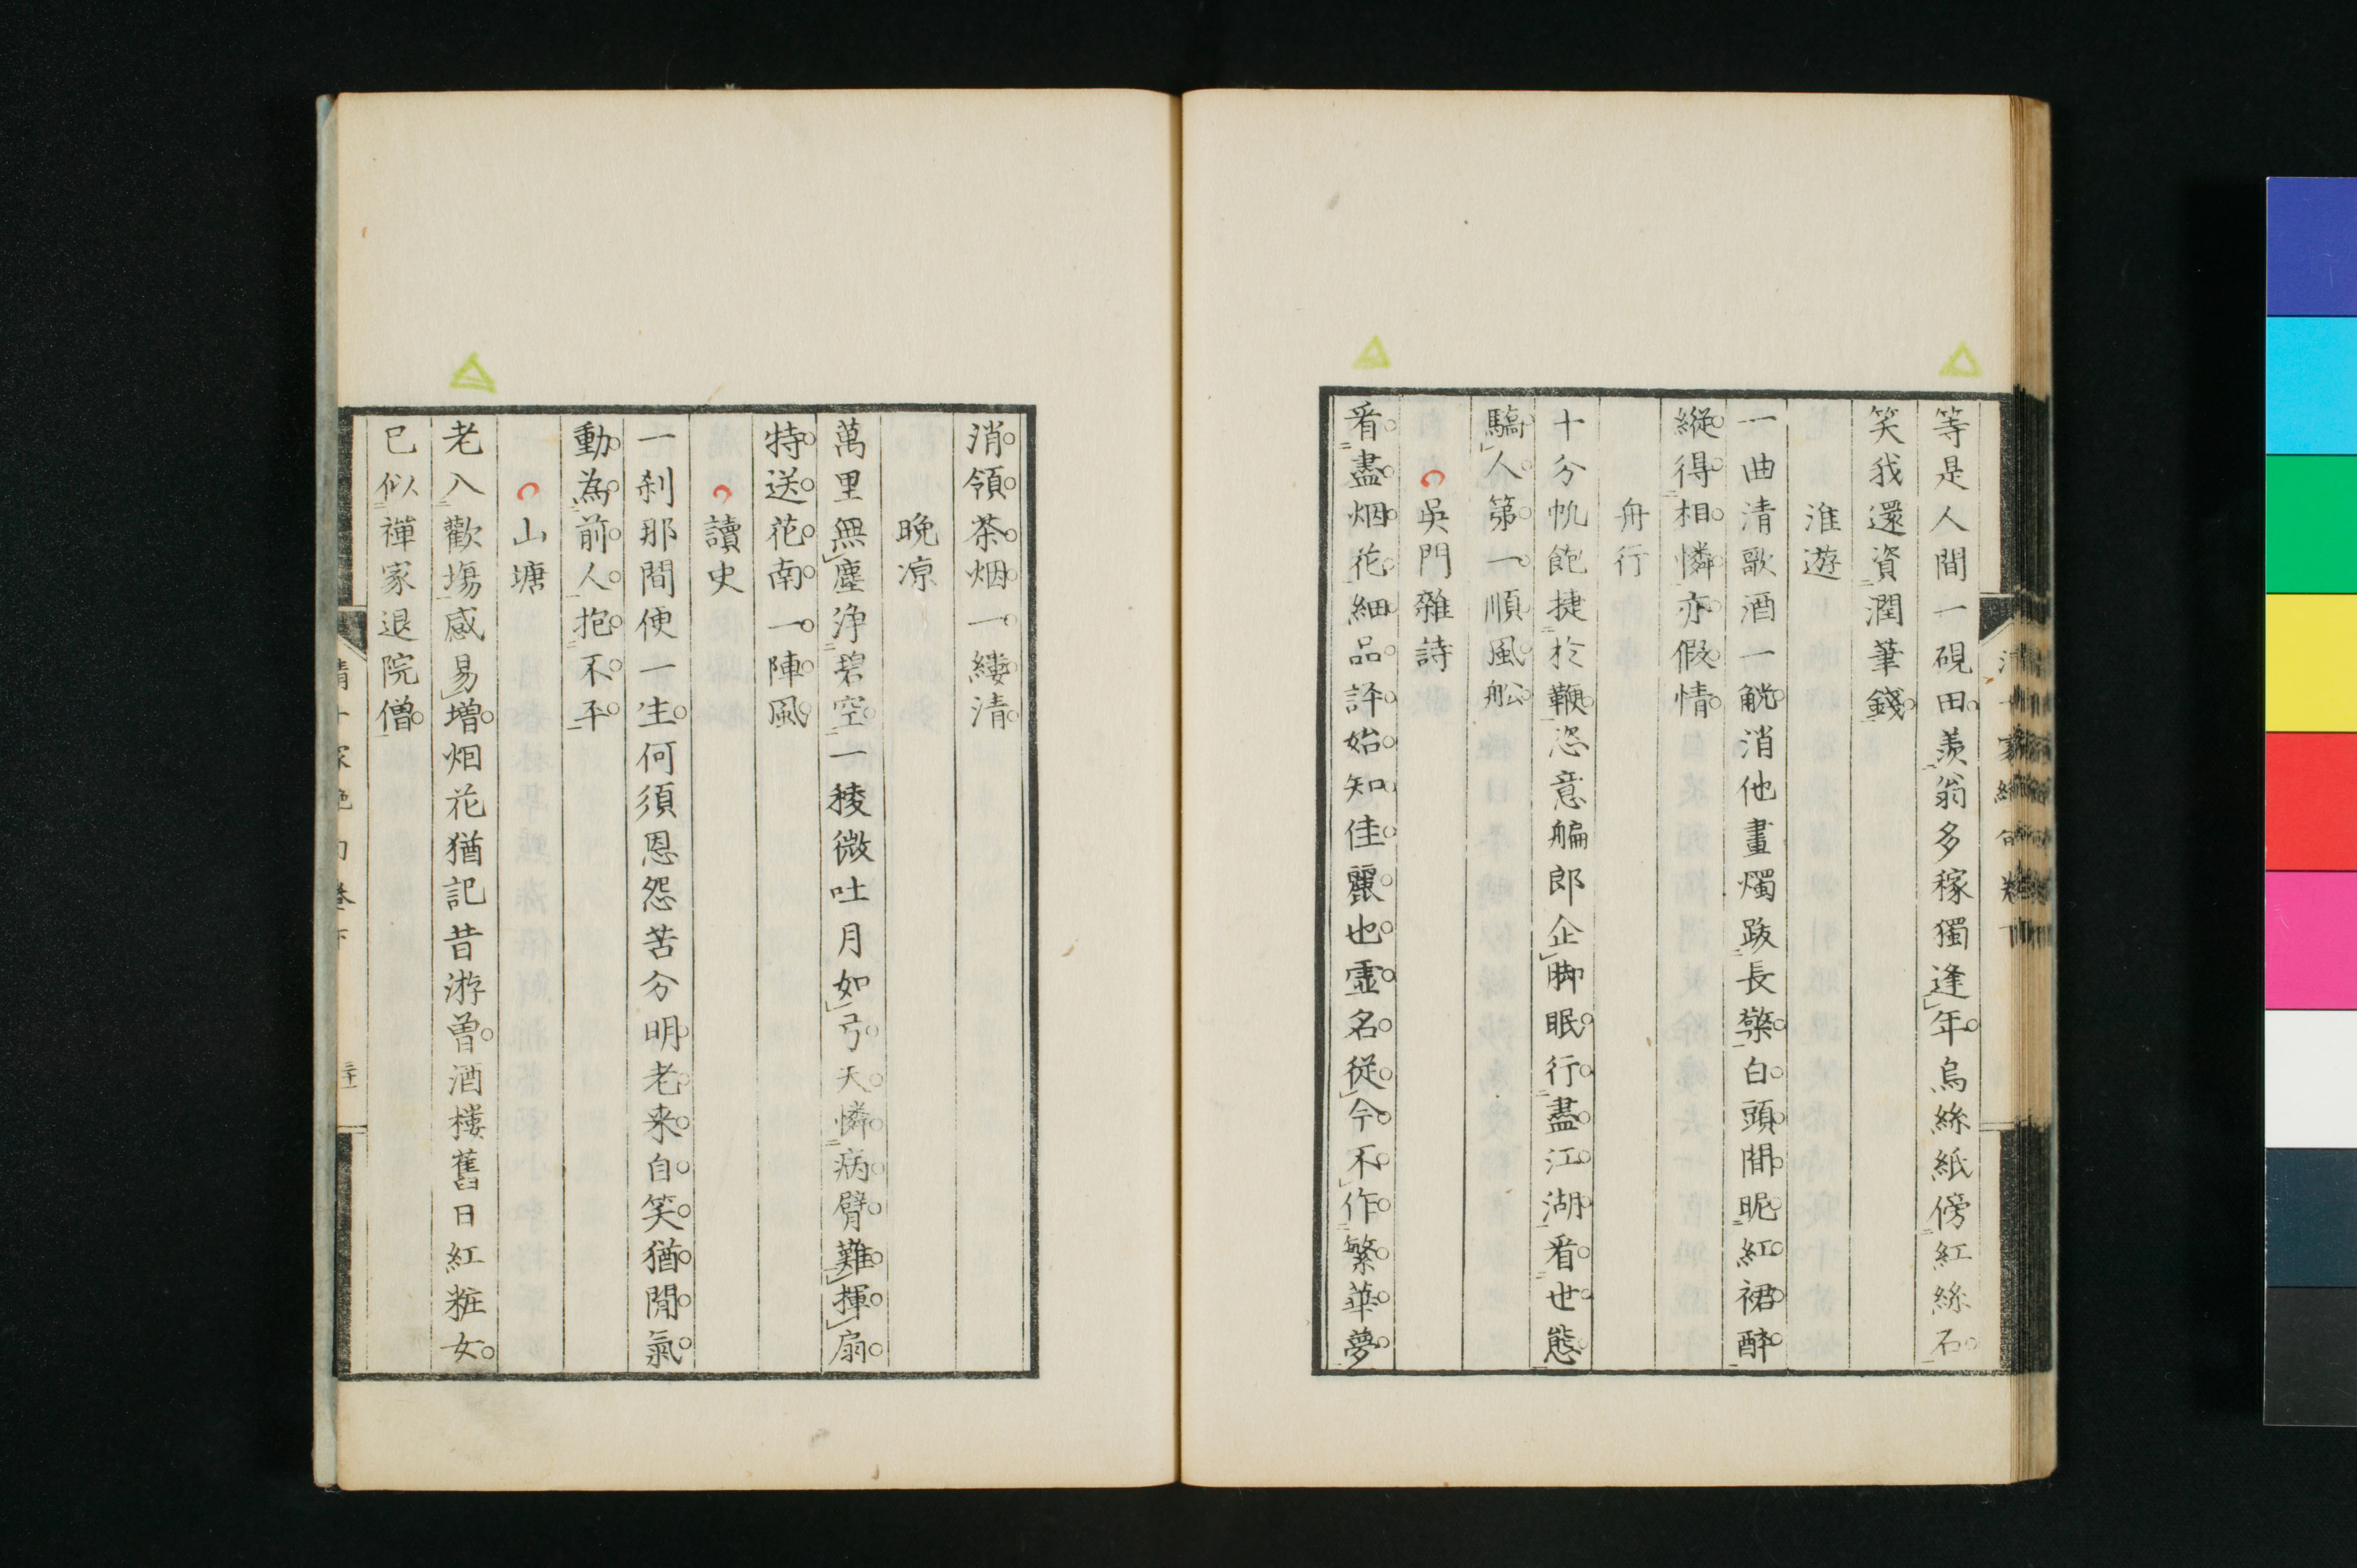 等是人間一硯田羨翁多稼獨逢年烏絲紙傍紅絲石
笑我還資潤筆錢
淮遊
一曲清歌酒一觥消他畫燭跋長檠白頭間昵紅裙醉
縱得相憐亦假情
舟行
十分帆飽捷於鞭恣意艑郎企脚眠行盡江湖看世態
驕人第一順風船
吳門雜詩
看盡烟花細品評始知佳麗也虛名從今不作繁華夢
消領茶烟一縷清
晚凉
萬里無塵淨碧空一稜微吐月如弓天憐病臂難揮扇
特送花南一陣風
讀史
一刹那間便一生何須恩怨苦分明老来自笑猶閒氣
動為前人抱不平
山塘
老入歡塲感易增烟花猶記昔游曾酒樓舊日紅粧女
已似禪家退院僧